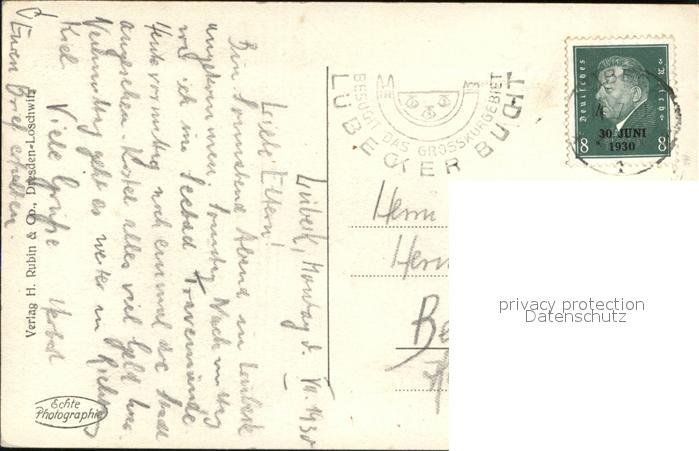 Lübeck, Montag d. VII. 1930
Liebe Eltern!
Bin Sonnabend Abend in Lübeck
angekommen. Sonntag Nachmittag
war ich im Seebad Travemünde
Heute vormittag noch einmal die Stadt
angesehen. Kostet alles viel Geld hier.
Nachmittag geht es weiter in Richtung
Kiel. Viele Grüße
Euren Brief erhalten.
Verlag H. Rubin & Co., Dresden-Loschwitz
Echte
Photographie
BESUCHT DAS GROSSKURGEBIET
LÜBECKER BUCHT
Deutsches Reich
30. JUNI
1930
8 8
Herrn
Be
privacy protection
Datenschutz